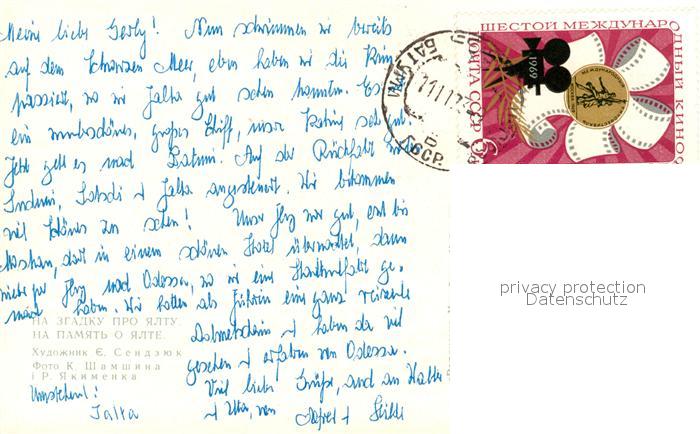 Meine liebe Gerly! Nun schwimmen wir bereits
auf dem Schwarzen Meer, eben haben wir die Krim
passiert, wo wir Jalta gut sehen konnten. Es ist
ein wunderschönes, großes Schiff, unser
Jetzt geht es nach Batumi. Auf der Rückfahrt wird
Suchumi, Sotschi + Jalta angesteuert. Wir bekommen
viel Schönes zu sehen! Unser Flug war gut, erst bis
Moskau, dort in einem schönen Hotel übernachtet, dann
weiter per Flug nach Odessa, wo wir eine Stadtrundfahrt ge-
macht haben. Wir hatten als Führerin eine ganz reizende
Dolmetscherin + haben da viel
gesehen + erfahren von Odessa.
Viel liebe Grüße, auch an
+ von Alfred +
Umstehend!
Jalta
НА ЗГАДКУ ПРО ЯЛТУ.
НА ПАМЯТЬ О ЯЛТЕ.
Художник Є. Сендзюк
Фото К. Шамшина
і Р. Якименка
ШЕСТОЙ МЕЖДУНАРОДНЫЙ КИНОФ
ПОЧТА СССР
1969
6к
БАТУМИ
privacy protection
Datenschutz